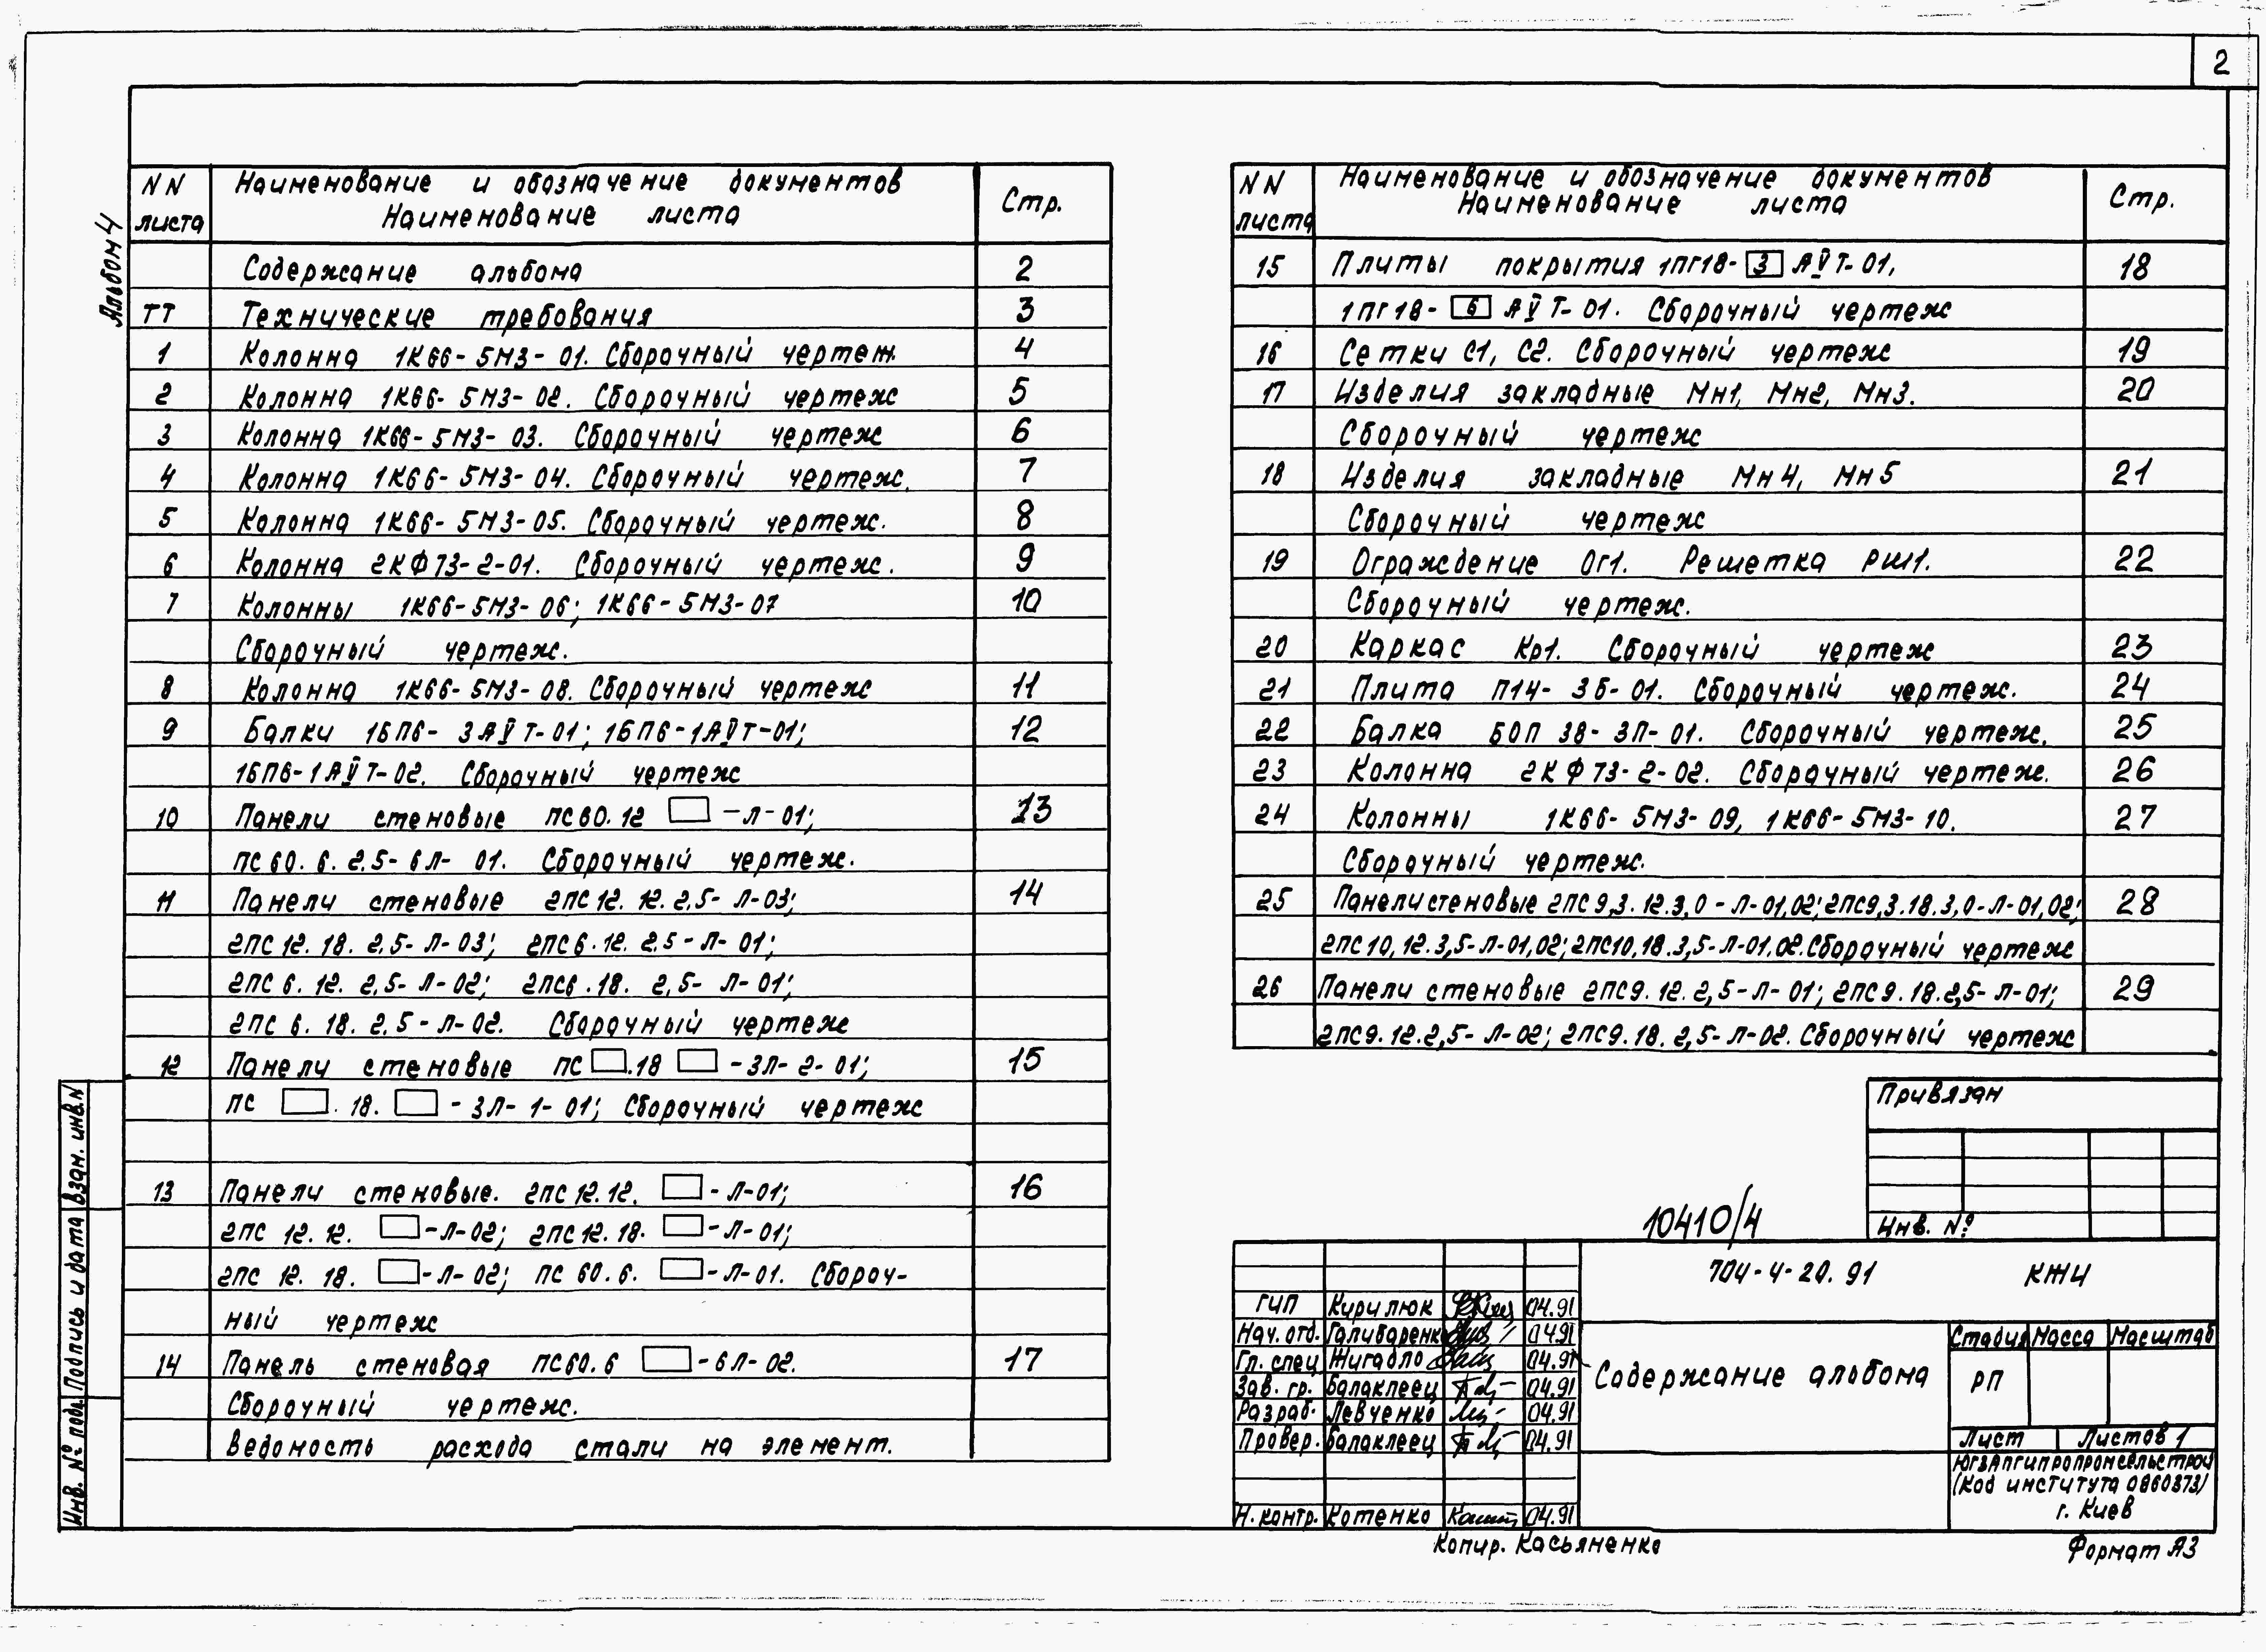 2
Альбом 4
NN листа
Наименование и обозначение документов
Наименование листа
Стр.
Содержание альбома 2
ТТ Технические требования 3
1 Колонна 1К66-5М3-01. Сборочный чертеж 4
2 Колонна 1К66-5М3-02. Сборочный чертеж 5
3 Колонна 1К66-5М3-03. Сборочный чертеж 6
4 Колонна 1К66-5М3-04. Сборочный чертеж. 7
5 Колонна 1К66-5М3-05. Сборочный чертеж. 8
6 Колонна 2КФ73-2-01. Сборочный чертеж. 9
7 Колонны 1К66-5М3-06; 1К66-5М3-07 10
Сборочный чертеж.
8 Колонна 1К66-5М3-08. Сборочный чертеж 11
9 Балки 1БП6-3АVТ-01; 1БП6-1АVТ-01; 12
1БП6-1АVТ-02. Сборочный чертеж
10 Панели стеновые ПС60.12 □-Л-01; 13
ПС60.6.2,5-6Л-01. Сборочный чертеж.
11 Панели стеновые 2ПС12.12.2,5-Л-03; 14
2ПС12.18.2,5-Л-03; 2ПС6.12.2.5-Л-01;
2ПС6.12.2,5-Л-02; 2ПС6.18.2,5-Л-01;
2ПС6.18.2,5-Л-02. Сборочный чертеж
12 Панели стеновые ПС□.18□-3Л-2-01; 15
ПС□.18.□-3Л-1-01; Сборочный чертеж
13 Панели стеновые. 2ПС12.12.□-Л-01; 16
2ПС12.12.□-Л-02; 2ПС12.18.□-Л-01;
2ПС12.18.□-Л-02; ПС60.6.□-Л-01. Сбороч-
ный чертеж
14 Панель стеновая ПС60.6□-6Л-02. 17
Сборочный чертеж.
Ведомость расхода стали на элемент.
NN листа
Наименование и обозначение документов
Наименование листа
Стр.
15 Плиты покрытия 1ПГ18-3АVТ-01, 18
1ПГ18-6АVТ-01. Сборочный чертеж
16 Сетки С1, С2. Сборочный чертеж 19
17 Изделия закладные Мн1, Мн2, Мн3. 20
Сборочный чертеж
18 Изделия закладные Мн4, Мн5 21
Сборочный чертеж
19 Ограждение Ог1. Решетка РШ1. 22
Сборочный чертеж.
20 Каркас Кр1. Сборочный чертеж 23
21 Плита П14-3Б-01. Сборочный чертеж. 24
22 Балка БОП 38-3П-01. Сборочный чертеж. 25
23 Колонна 2КФ73-2-02. Сборочный чертеж. 26
24 Колонны 1К66-5М3-09, 1К66-5М3-10. 27
Сборочный чертеж.
25 Панели стеновые 2ПС9,3.12.3,0-Л-01,02; 2ПС9,3.18.3,0-Л-01,02; 28
2ПС10,12.3,5-Л-01,02; 2ПС10,18.3,5-Л-01,02. Сборочный чертеж
26 Панели стеновые 2ПС9.12.2,5-Л-01; 2ПС9.18.2,5-Л-01; 29
2ПС9.12.2,5-Л-02; 2ПС9.18.2,5-Л-02. Сборочный чертеж
Привязан
Инв. №
10410/4
704-4-20.91 КЖИ
ГИП Кирилюк 04.91
Нач. отд. Галибаренко 04.91
Гл. спец Жигадло 04.91
Зав. гр. Балаклеец 04.91
Разраб. Левченко 04.91
Провер. Балаклеец 04.91
Н. контр. Котенко 04.91
Содержание альбома
Стадия Масса Масштаб
РП
Лист Листов 1
Югзапгипропромсельстрой
(Код института 0860373)
г. Киев
Копир. Касьяненко
Формат А3
Взам. инв. N
Подпись и дата
Инв. № подл.